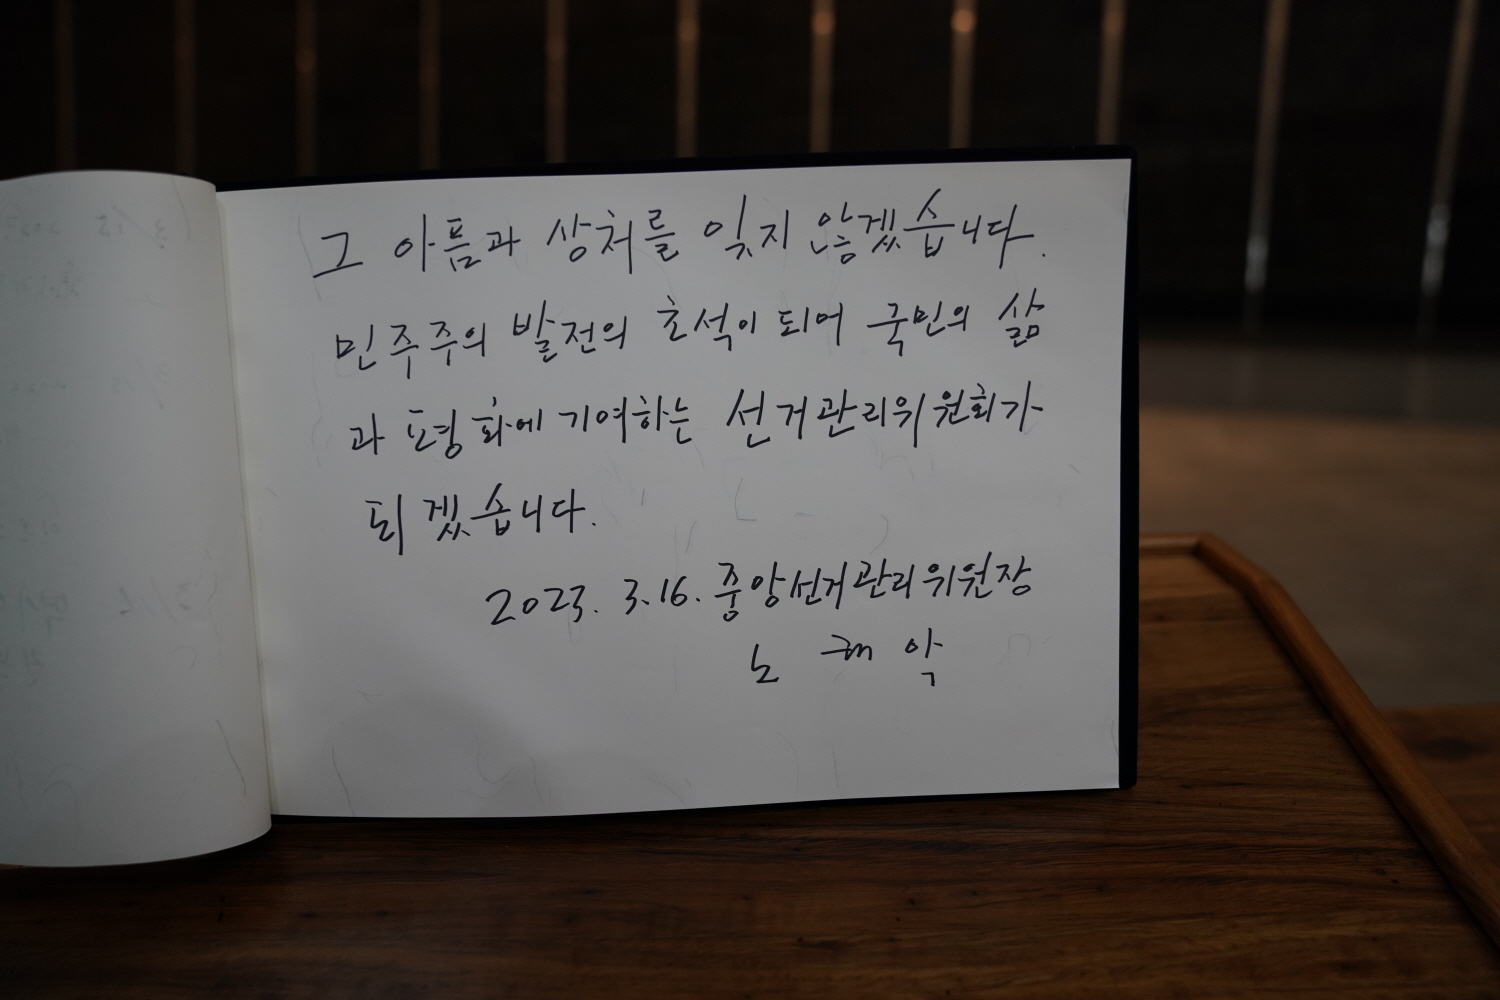 그 아픔과 상처를 잊지 않겠습니다.
민주주의 발전의 초석이 되어 국민의 삶
과 평화에 기여하는 선거관리위원회가
되겠습니다.
2023. 3.16. 중앙선거관리위원장
노 태 악